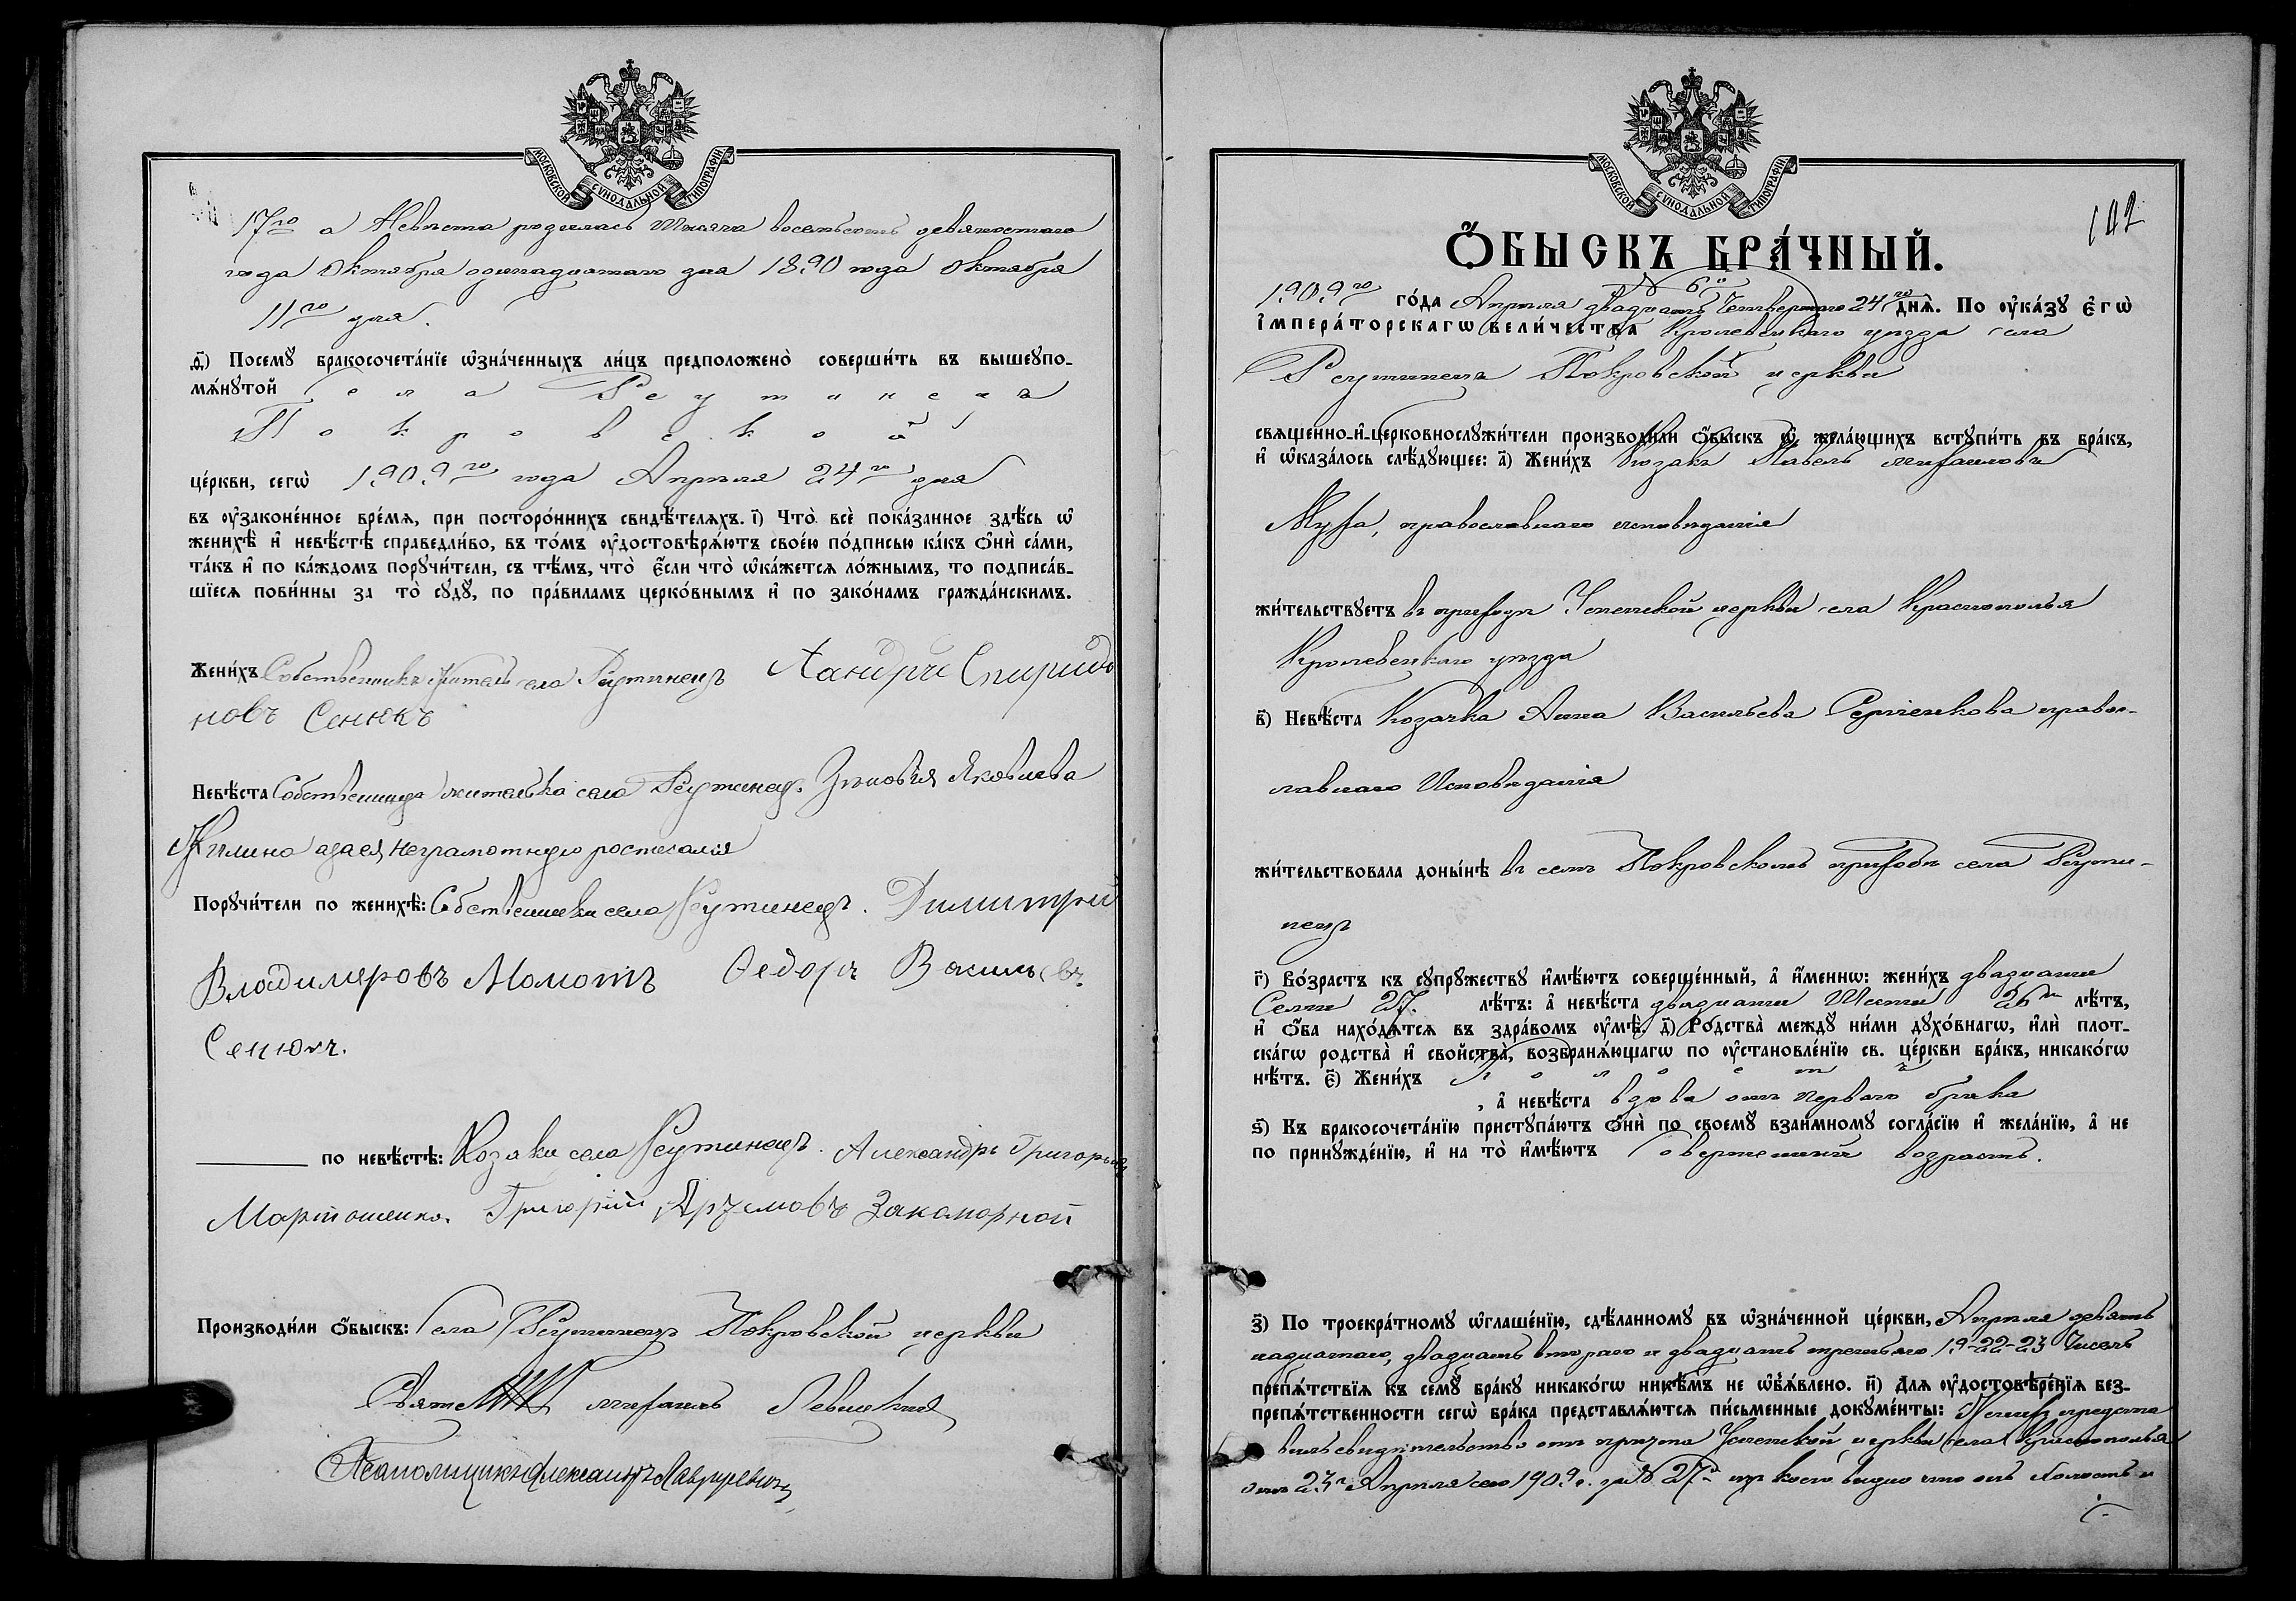 МОСКОВСКОЙ СѴНОДАЛЬНОЙ ТИПОГРАФІИ
17го а Невѣста родилась тысяча восемьсотъ девяностаго
года Октября одинадцатаго дня 1890 года Октября
11го дня.
д҃) Посемꙋ̀ бракосочета́нїе ѡ҆зна́ченныхъ ли́цъ предположено̀ соверши́ть въ вышеꙋпо-
мѧ́нꙋтой села Реутинецъ
Покровской
це́ркви, сегѡ̀ 1909го года Апрѣля 24го дня
въ ᲂу҆законе́нное вре́мѧ, при посторо́ннихъ свидѣ́телѧхъ. і҃) Что̀ всѐ пока́занное здѣ́сь ѡ҆
женихѣ̀ и҆ невѣ́стѣ справедли́во, въ то́мъ ᲂу҆достовѣрѧ́ютъ свое́ю по́дписью ка́къ ѻ҆нѝ са́ми,
та́къ и҆ по ка́ждомъ порꙋчи́тели, съ тѣ́мъ, что̀ є҆́сли что̀ ѡ҆ка́жетсѧ ло́жнымъ, то подписа́в-
шїесѧ пови́нны за то̀ сꙋдꙋ̀, по пра́виламъ церко́внымъ и҆ по зако́намъ гражда́нскимъ.
Жени́хъ Собственникъ житель села Реутинецъ Андрій Спиридо
новъ Сенюкъ
Невѣ́ста Собственница жителька села Реутинецъ. Зиновія Яковлева
неграмотную
Порꙋчи́тели по женихѣ̀: Собственники села Реутинецъ. Димитрій
Владимеровъ Момотъ Федоръ Васильевъ
Сенюкъ.
по невѣ́стѣ: Козаки села Реутинецъ. Александръ Григорьевъ
Мартошенко. Григорій Артемовъ Закоморной
Производи́ли ѻ҆́быскъ: Села Реутинецъ Покровской церкви
Свящ Михаилъ Левицкій
Псаломщикъ Александръ
МОСКОВСКОЙ СѴНОДАЛЬНОЙ ТИПОГРАФІИ
142
Ѻ҆́БЫСКЪ БРА́ЧНЫЙ.
№ 6й
1909го го́да Апрѣля двадцать четвертаго 24го днѧ̀. По ᲂу҆ка́зꙋ є҆гѡ̀
і҆мпера́торскагѡ вели́чества Кролевецкаго уѣзда села
Реутинецъ Покровской церкви
свѧщенно-и҆-церковнослꙋжи́тели производи́ли ѻ҆́быскъ ѡ҆ жела́ющихъ встꙋпи́ть въ бра́къ,
и҆ ѡ҆каза́лось слѣ́дꙋющее: а҃) Жени́хъ Козакъ Павелъ Михаиловъ
Муха, православнаго исповѣданія
жи́тельствꙋетъ въ приходѣ Успенской церкви села Краснополья
Кролевецкаго уѣзда
в҃) Невѣ́ста Козачка Анна Васильева Сергіенкова право-
славнаго Исповѣданія
жи́тельствовала доны́нѣ въ семъ Покровскомъ приходѣ села Реути-
нецъ
г҃) Во́зрастъ къ сꙋпрꙋ́жествꙋ и҆мѣ́ютъ соверше́нный, а҆ и҆́меннѡ: жени́хъ двадцати
Семи 27. лѣ́тъ: а҆ невѣ́ста двадцати Шести 26ти лѣ́тъ,
и҆ ѻ҆́ба нахо́дѧтсѧ въ здра́вомъ ᲂу҆мѣ̀. д҃) Родства̀ междꙋ̀ ни́ми дꙋхо́внагѡ, и҆лѝ плот-
ска́гѡ родства̀ и҆ свойства̀, возбранѧ́ющагѡ по ᲂу҆становле́нїю св. це́ркви бра́къ, никако́гѡ
нѣ́тъ. є҃) Жени́хъ холостъ
, а҆ невѣ́ста вдова отъ перваго брака
ѕ҃) Къ бракосочета́нїю пристꙋпа́ютъ ѻ҆нѝ по своемꙋ̀ взаи́мномꙋ согла́сїю и҆ жела́нїю, а҆ не
по принꙋжде́нїю, и҆ на то̀ и҆мѣ́ютъ Совершенный возрастъ.
з҃) По троекра́тномꙋ ѡ҆глаше́нїю, сдѣ́ланномꙋ въ ѡ҆зна́ченной це́ркви, Апрѣля девять
надцатаго, двадцать втораго и двадцать третьяго 19-22-23 Чиселъ
препѧ́тствїѧ къ семꙋ̀ бра́кꙋ никако́гѡ никѣ́мъ не ѡ҆б̾ѧ́влено. и҃) Длѧ ᲂу҆достовѣре́нїѧ без-
препѧ́тственности сегѡ̀ бра́ка представлѧ́ютсѧ пи́сьменные докꙋме́нты: Женихъ предста
вилъ свидѣтельство отъ причта Успенской церкви села Краснополья
отъ 23го Апрѣля сего 1909 г. за № 27й изъ коего видно что онъ холостъ и